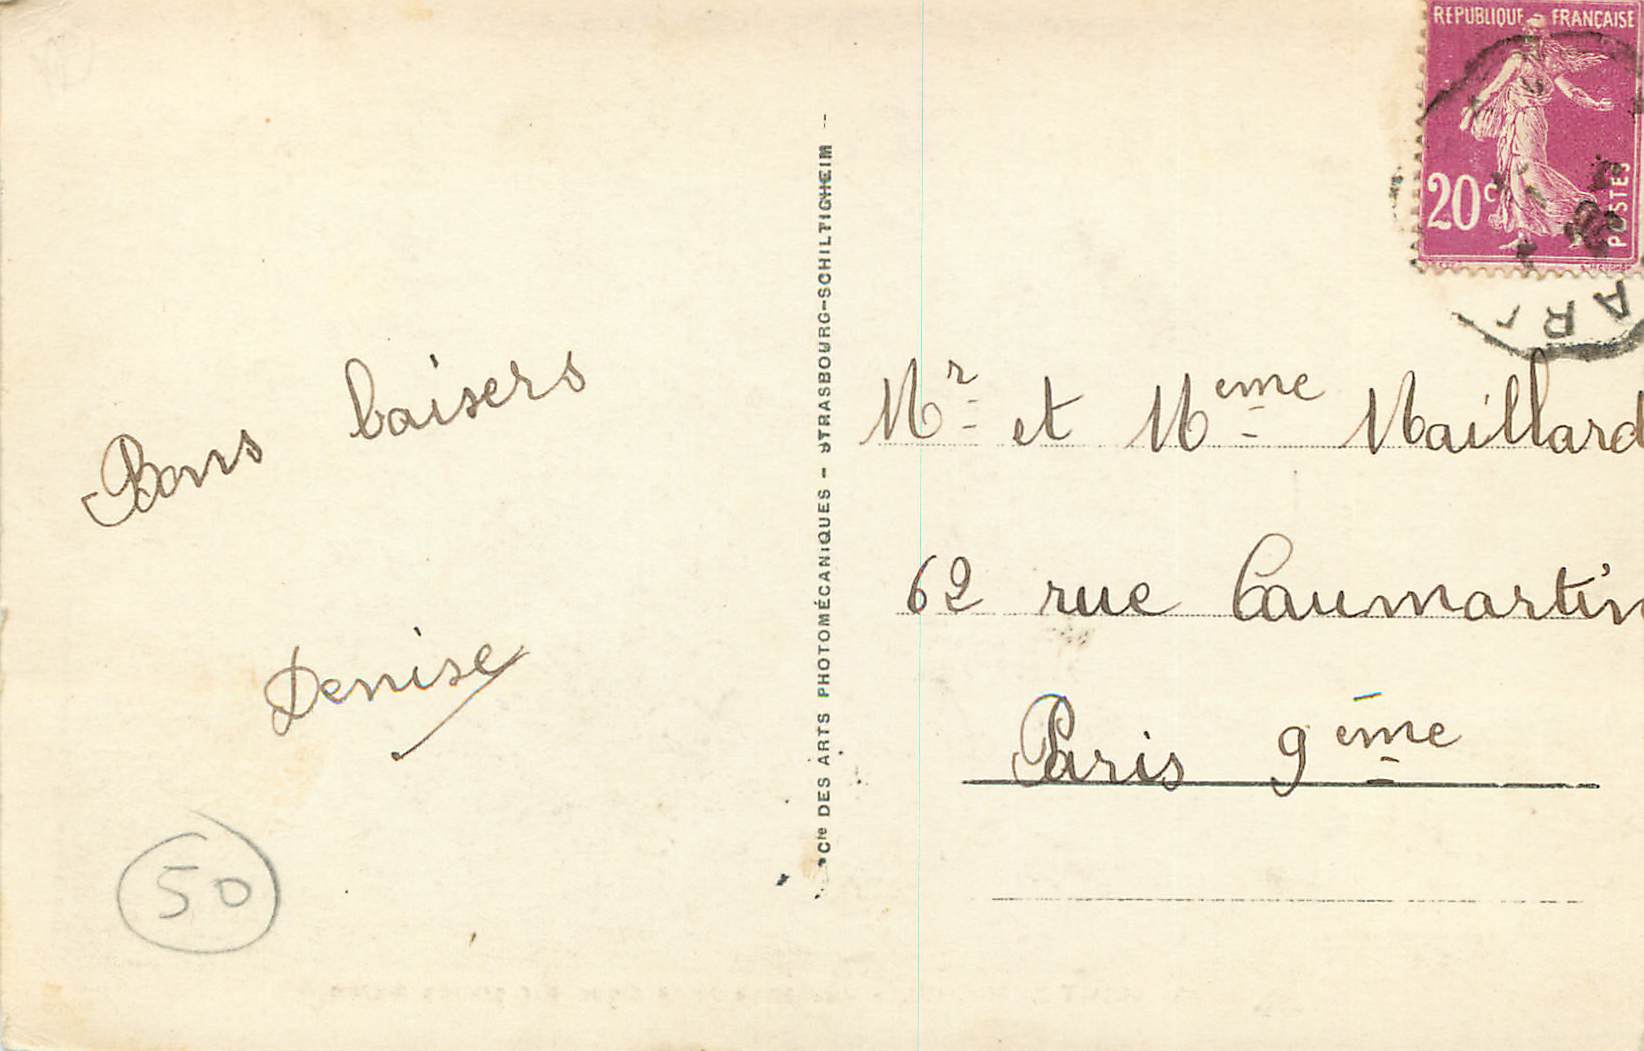 Bons baisers
Denise
50
Cie DES ARTS PHOTOMÉCANIQUES - STRASBOURG-SCHILTIGHEIM -
REPUBLIQUE FRANÇAISE
20c
POSTES
Mr et Meme Maillard
62 rue Caumartin
Paris 9eme